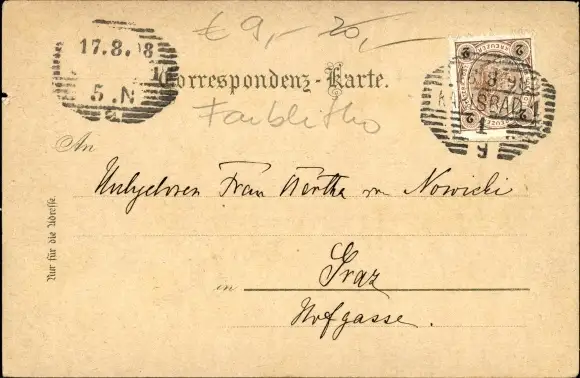 € 9,- 20,-
17.8.98
5.N
Correspondenz-Karte.
Farblitho
2 KREUZER 2
KARLSBAD 1
An
Frau Bertha von Nowicki
Nur für die Adresse.
in Graz
Hofgasse.